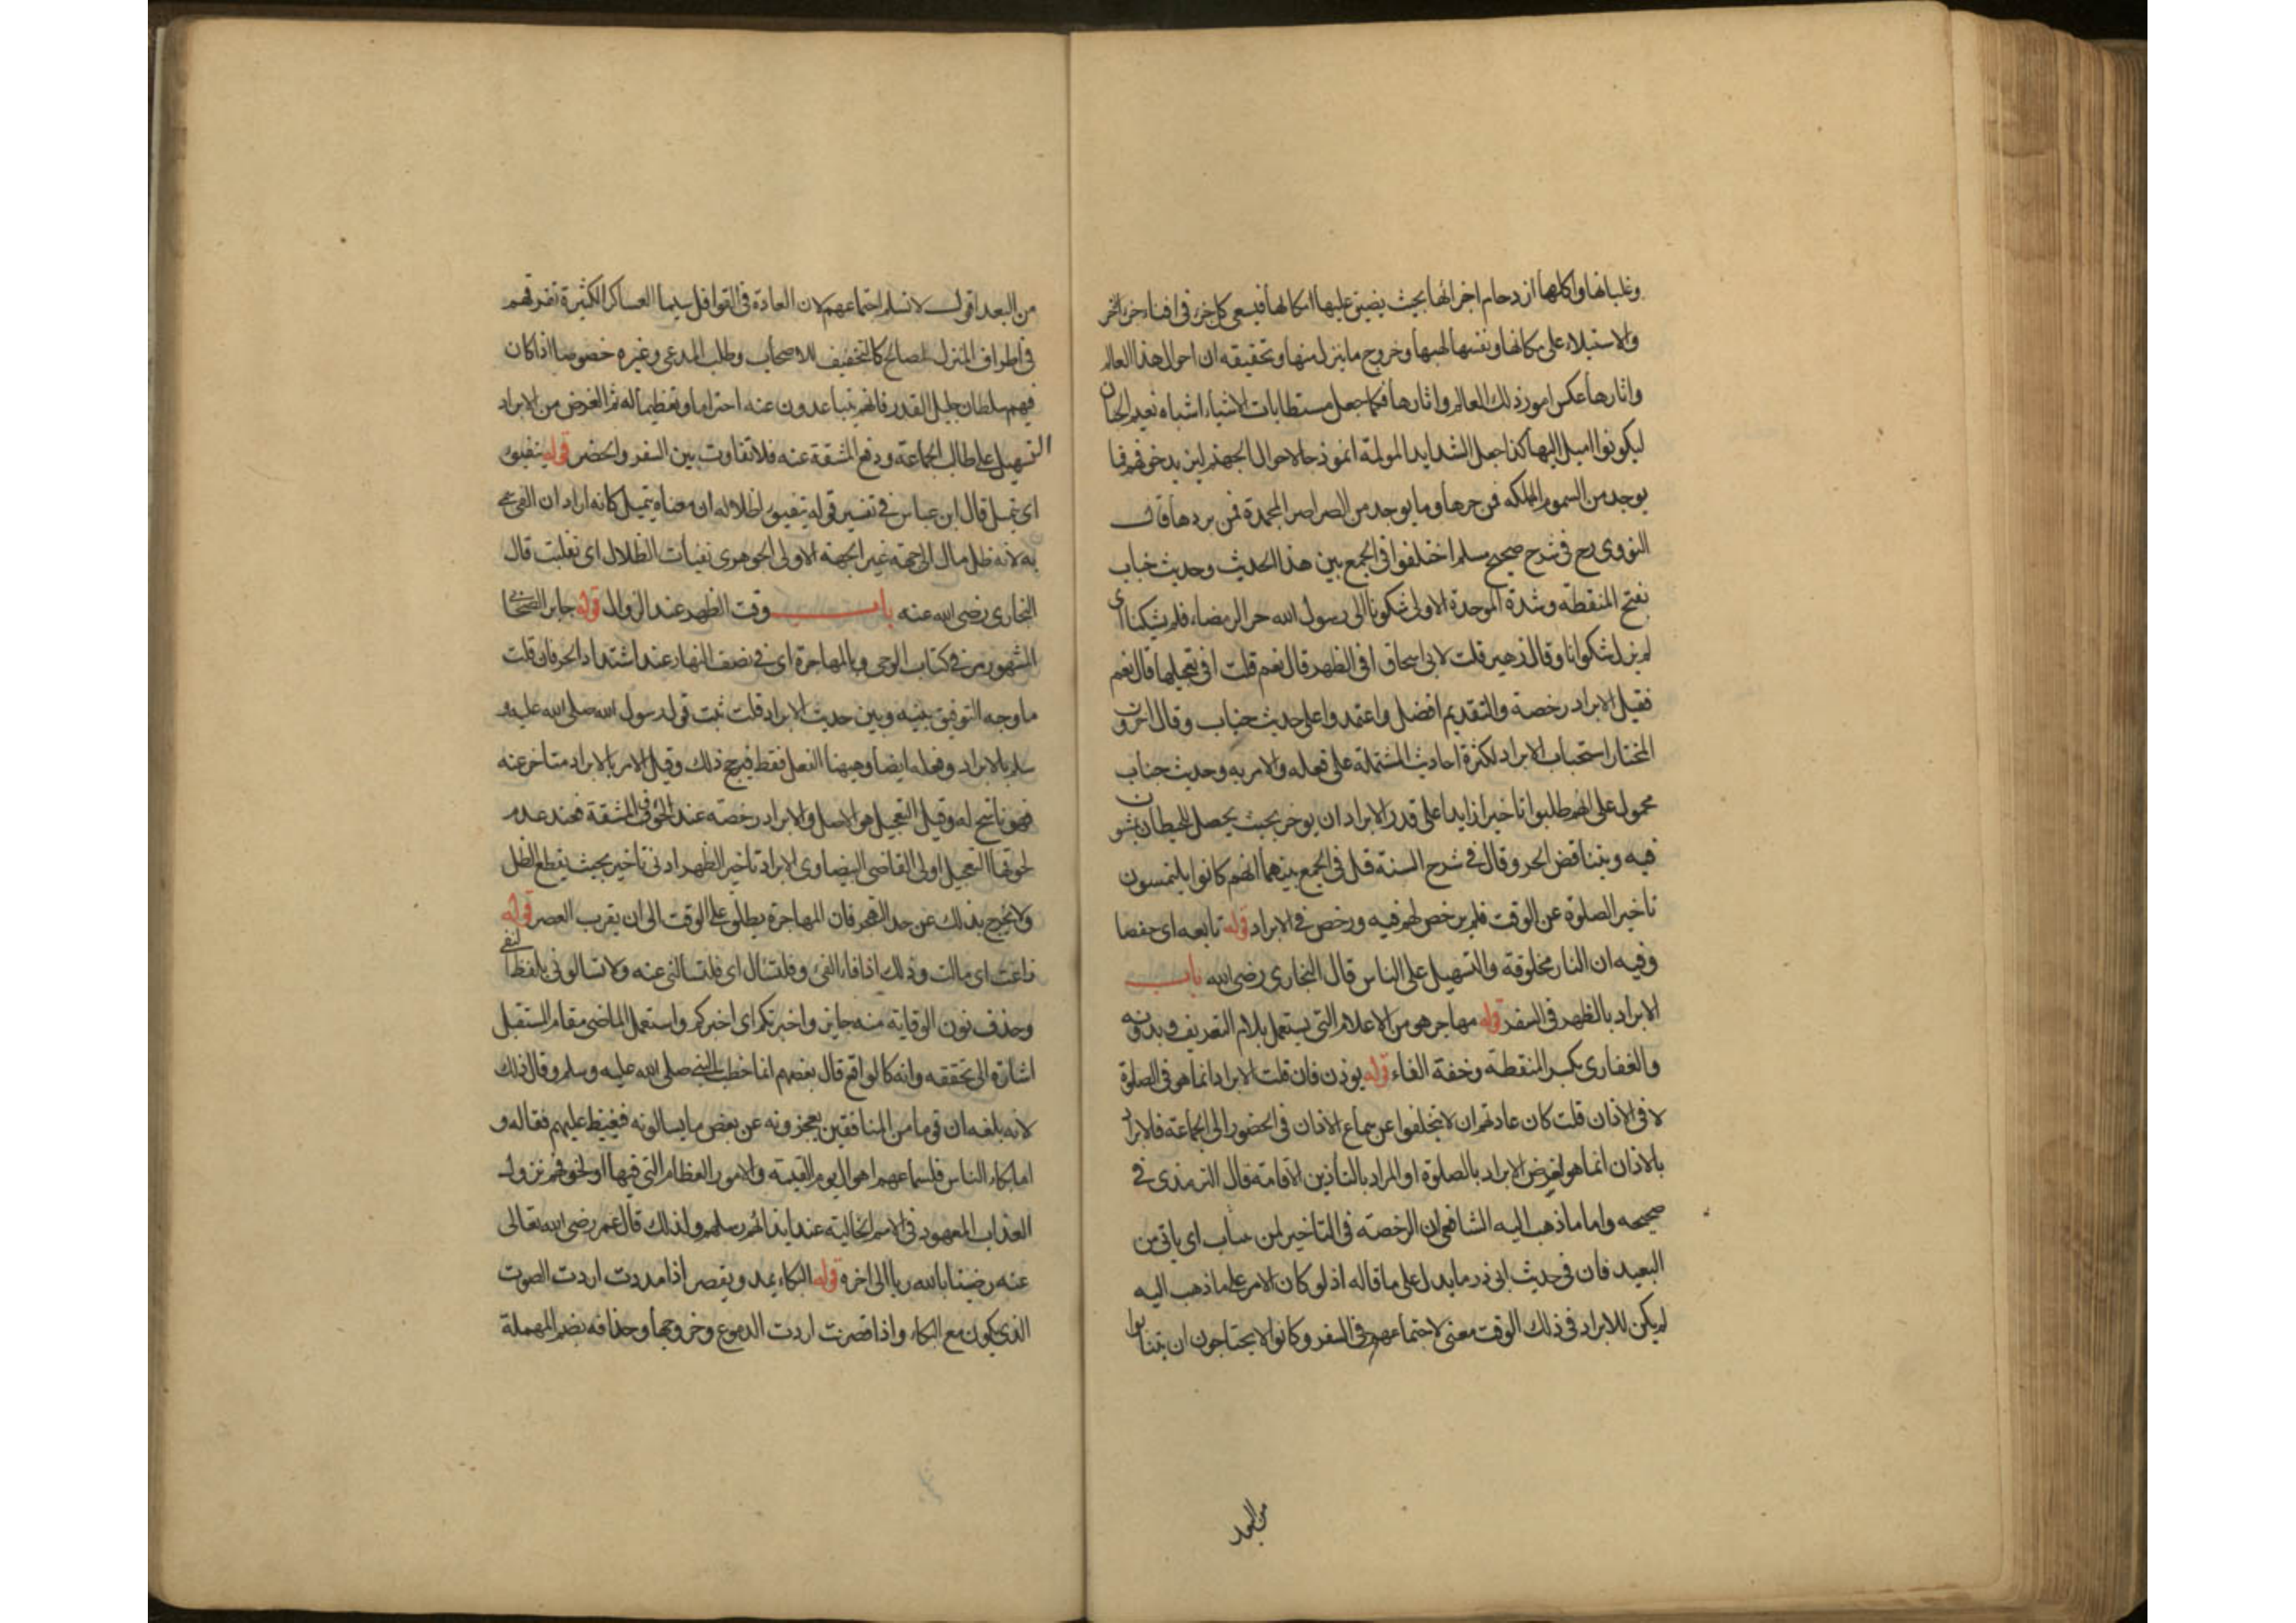 وغلبانها واكلها ازدحام اجزائها بحيث يضيق عليها امكانها فيسعى كل جزء في افناء جزء اخر
والاستيلاء على مكانها ونفسها لهبها وخروج ما ينزل منها وتحقيقه ان احوال هذا العالم
واثارها عكس امور ذلك العالم واثارها فكما جعل مستطابات الاشياء اشباه نعيم الجنان
ليكونوا اميل اليها كذا جعل الشدايد المولمة انموذجا لاحوال الجهنم ليزيد خوفهم فما
يوجد من السموم المهلكه فمن حرها وما يوجد من الصراصر المجمدة فمن بردها قال
النووي رح في شرح صحيح مسلم اختلفوا في الجمع بين هذا الحديث وحديث خباب
بفتح المنقطة وشدة الموحدة الاولى شكونا الى رسول الله حر الرمضاء فلم يشكنا اي
لم يزل شكوانا وقال زهير قلت لابي اسحاق افي الظهر قال نعم قلت افي تعجيلها قال نعم
فقيل الابراد رخصة والتقديم افضل واعتمدوا على حديث خباب وقال اخرون
المختار استحباب الابراد لكثرة احاديث المشتملة على فعله والامر به وحديث خباب
محمول على انهم طلبوا تاخيرا زايدا على قدر الابراد ان يوخر بحيث يحصل للحيطان يمشون
فيه ويتناقض الحر وقال في شرح السنة قيل في الجمع بينهما انهم كانوا يلتمسون
تاخير الصلوة عن الوقت فلم يرخص لهم فيه ورخص في الابراد قوله تابعه اي حفصا
وفيه ان النار مخلوقة والتسهيل على الناس قال البخاري رضي الله باب
الابراد بالظهر في السفر قوله مهاجر هو من الاعلام التي يستعمل بلام التعريف وبدونه
والغفاري بكسر المنقطة وخفة الفاء قوله يوذن فان قلت الابراد انما هو في الصلوة
لا في الاذان قلت كان عادتهم ان لا يتخلفوا عن سماع الاذان في الحضور الى الجماعة فالابراد
بالاذان انما هو لغرض الابراد بالصلوة او المراد بالتأذين الاقامة قال الترمذي في
صحيحه واما ما ذهب اليه الشافعي ان الرخصة في التاخير لمن ينتاب اي ياتي من
البعيد فان في حديث ابي ذر ما يدل على ما قاله اذ لو كان الامر على ما ذهب اليه
لم يكن للابراد في ذلك الوقت معنى لاجتماعهم في السفر وكانوا لا يحتاجون ان يتنابوا
من البعد
من البعد اقول لا نسلم اجتماعهم لان العادة في القوافل سيما العساكر الكثيرة تفرقهم
في اطراف المنزل لمصالح كالتخفيف للاصحاب وطلب المرعى وغيره خصوصا اذا كان
فيهم سلطان جليل القدر فانهم يتباعدون عنه احتراما وتعظيما له ثم الغرض من الابراد
التسهيل على طالب الجماعة ودفع المشقة عنه فلا تفاوت بين السفر والحضر قوله يتفيؤ
اي يتميل قال ابن عباس في تفسير قوله يتفيؤ ظلاله ان معناه يتميل كانه اراد ان الفئ سمي
به لانه ظل مال الى جهة غير الجهة الاولى الجوهري تفيأت الظلال اي تقلبت قال
البخاري رضي الله عنه باب وقت الظهر عند الزوال قوله جابر الصحابي
المشهور مر في كتاب الوحي وبالهاجرة اي في نصف النهار عند اشتداد الحر فان قلت
ما وجه التوفيق بينه وبين حديث الابراد قلت ثبت قول رسول الله صلى الله عليه و
سلم بالابراد وفعله ايضا وههنا الفعل فقط فيرجح ذلك وقيل الامر بالابراد متاخر عنه
فهو ناسخ له وقيل التعجيل هو الاصل والابراد رخصة عند الخوف المشقة فعند عدم
لحوقها التعجيل اولى القاضي البيضاوي الابراد تاخير الظهر ادنى تاخير بحيث يقطع الظل
ولا يخرج بذلك عن حد التهجر فان المهاجرة يطلق على الوقت الى ان يقرب العصر قوله
زاغت اي مالت وذلك اذا فاء الفئ وفليسأل اي فليسألني عنه ولا تسالوني بلفظ النفي
وحذف نون الوقاية منه جايز واخبرتكم اي اخبركم واستعمل الماضي مقام المستقبل
اشارة الى تحققه وانه كالواقع قال بعضهم انما خطب النبي صلى الله عليه وسلم وقال ذلك
لانه بلغه ان قوما من المنافقين يعجزونه عن بعض ما يسالونه فغيظ عليهم فقاله و
اما بكاء الناس فلسماعهم اهوال يوم القيمة والامور العظام التي فيها او لخوفهم نزول
العذاب المعهود في الامم الخالية عند ايذائهم رسلهم ولذلك قال عمر رضي الله تعالى
عنه رضينا بالله ربا الى اخره قوله البكاء يمد ويقصر اذا مددت اردت الصوت
الذي يكون مع البكاء واذا قصرت اردت الدموع وخروجها وحذافه بضم المهملة